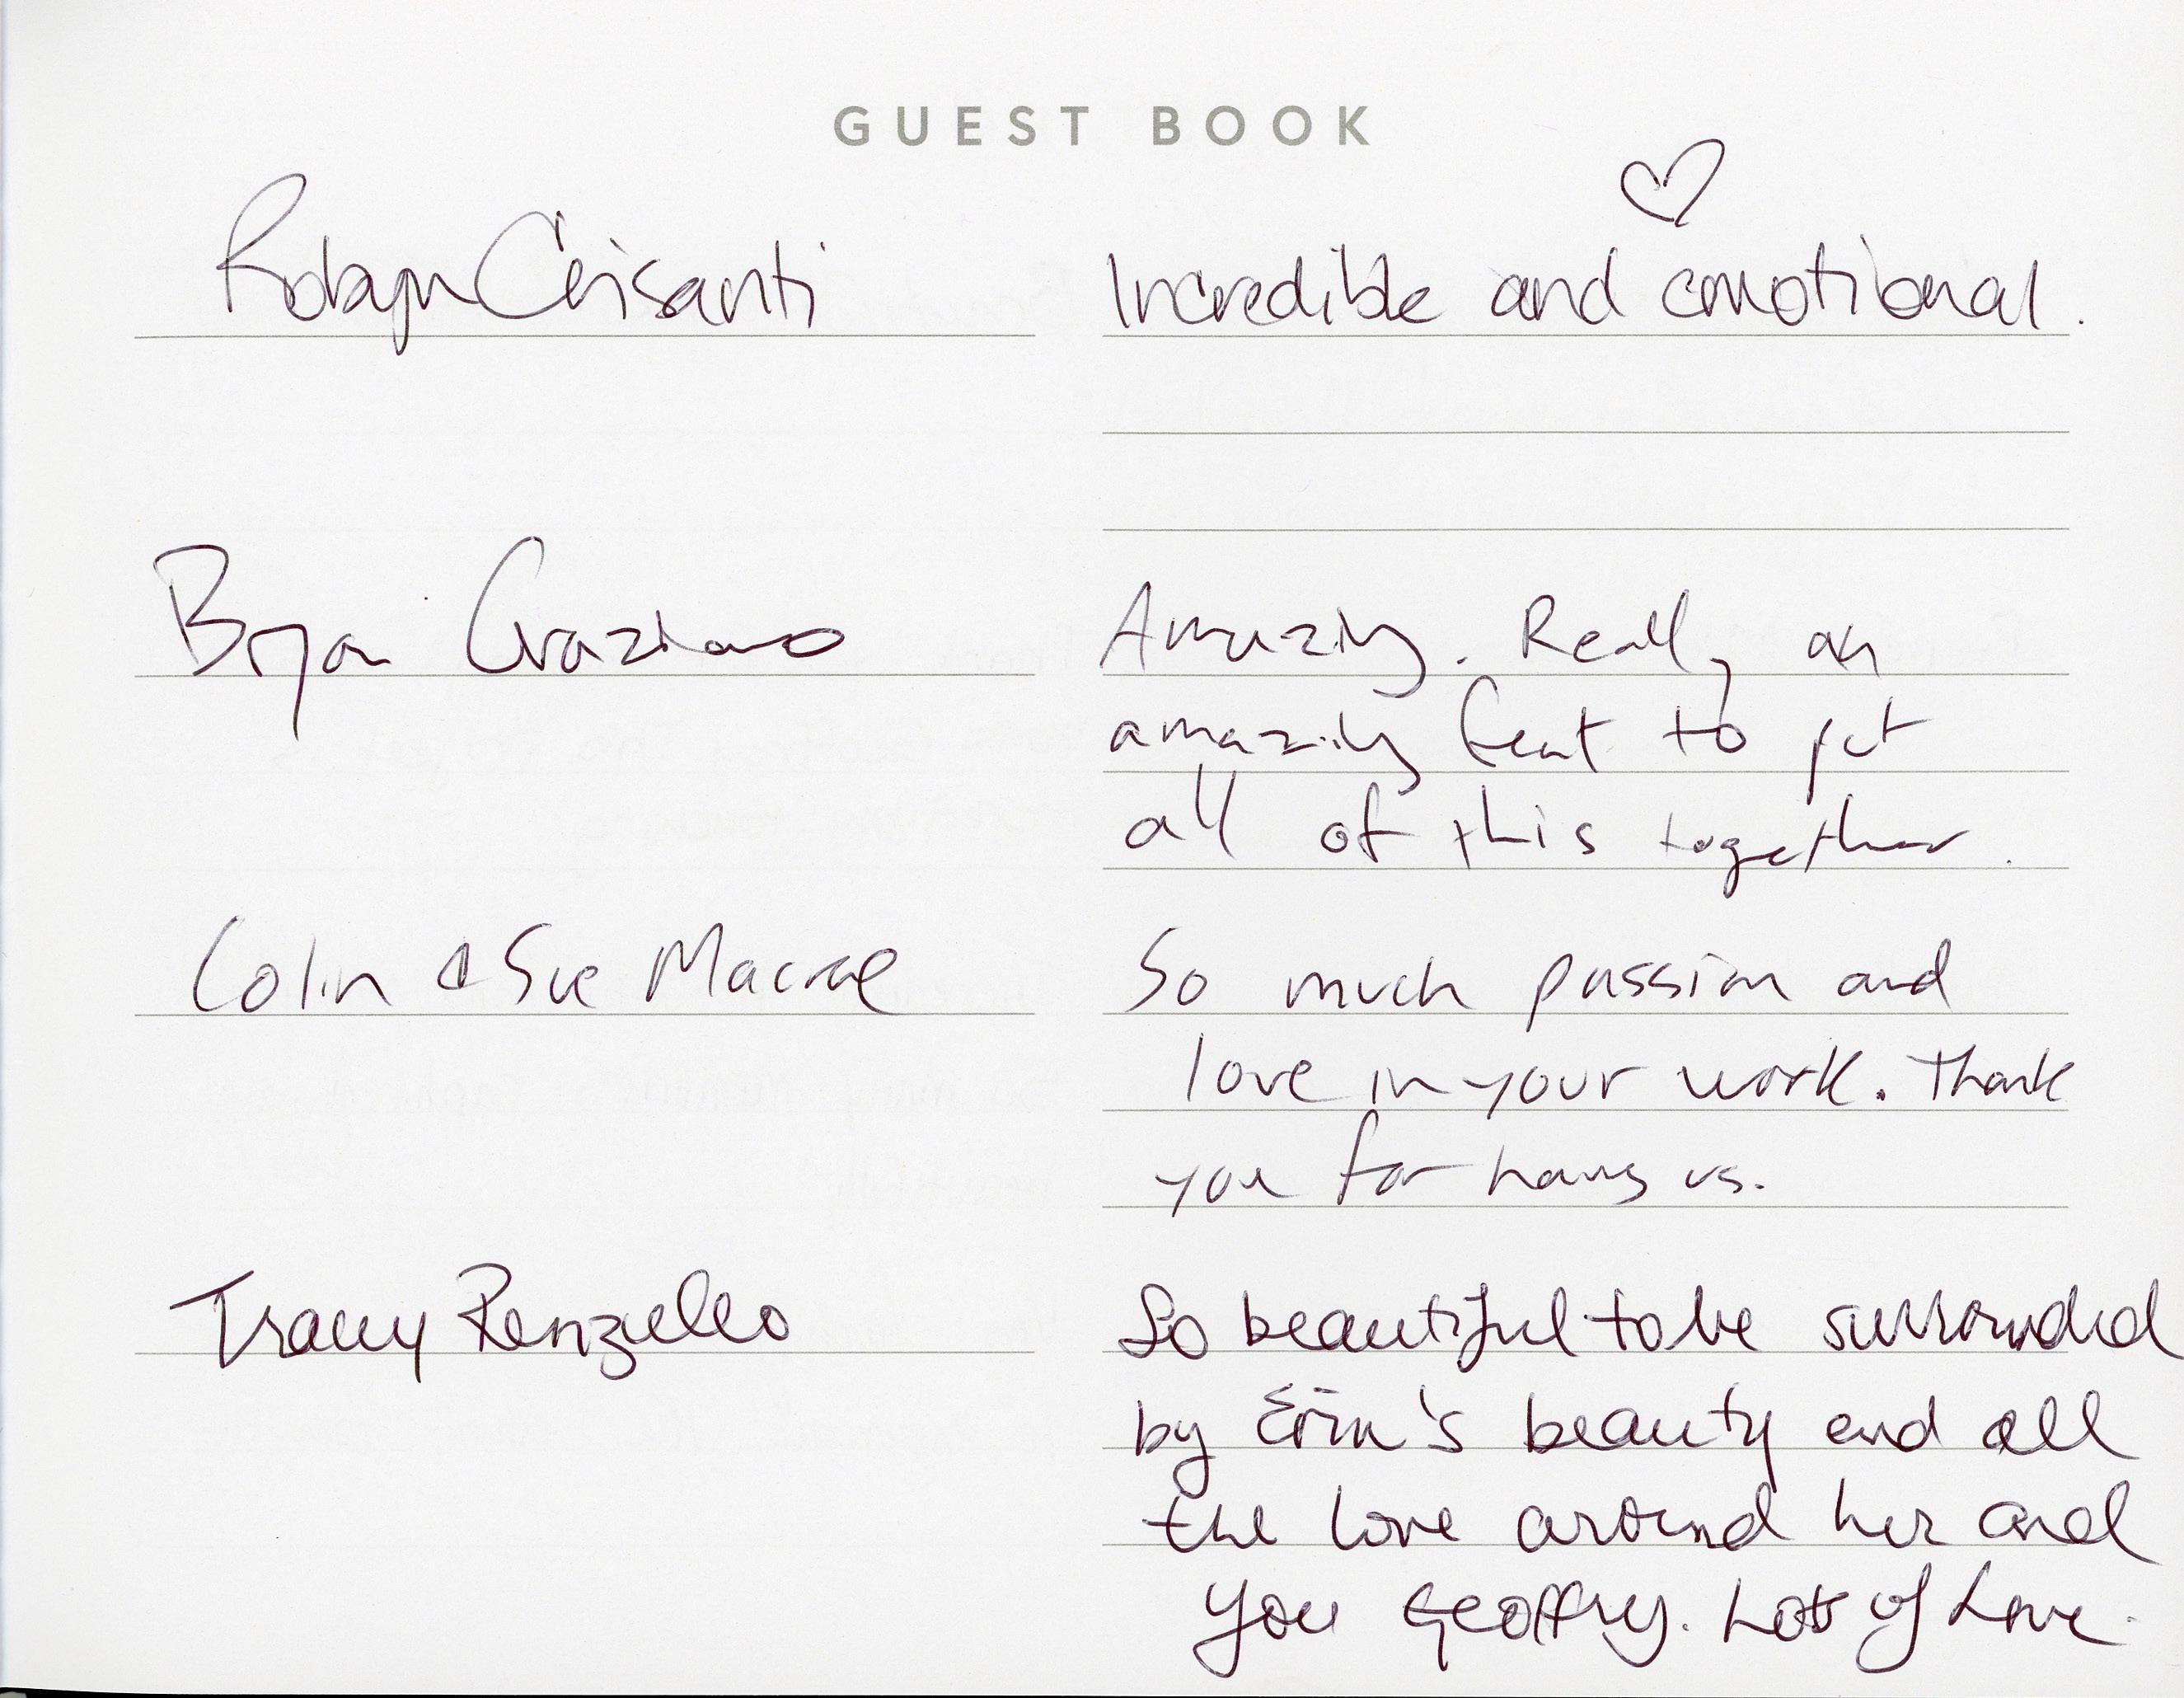 GUEST BOOK
Robyn Crisanti
Incredible and emotional.
Bryan Graziano
Amazing. Really an
amazing feat to put
all of this together.
Colin & Sue Macrae
So much passion and
love in your work. Thank
you for having us.
Tracey Renzullo
So beautiful to be surrounded
by Erin's beauty and all
the love around her and
you Geoffry. Lots of Love.